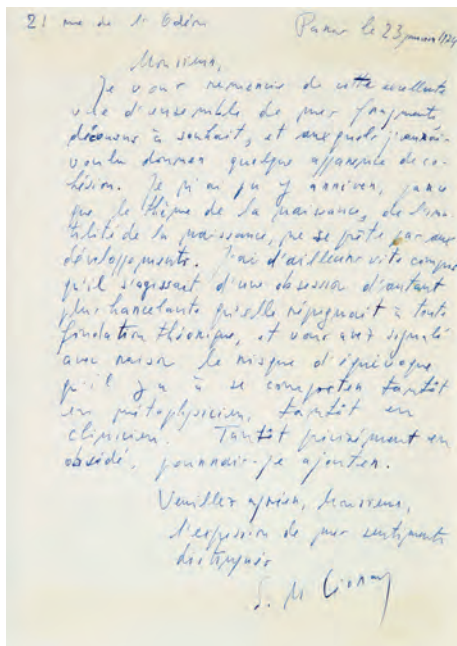 21 rue de l'Odéon Paris le 23 janvier 1974
Monsieur,
Je vous remercie de cette excellente
vue d'ensemble de mes fragments
décousus à souhait, et auxquels j'aurais
voulu donner quelque apparence de co-
hésion. Je n'ai pu y arriver, parce
que le thème de la naissance, de l'ina-
nité de la naissance, ne se prête pas aux
développements. J'ai d'ailleurs vite compris
qu'il s'agissait d'une obsession d'autant
plus harcelante qu'elle répugnait à toute
fondation théorique, et vous avez signalé
avec raison le risque d'équivoque
qu'il y a à se comporter tantôt
en métaphysicien, tantôt en
clinicien. Tantôt précisément en
obsédé, pourrais-je ajouter.
Veuillez agréer, Monsieur,
l'expression de mes sentiments
distingués
E. M. Cioran